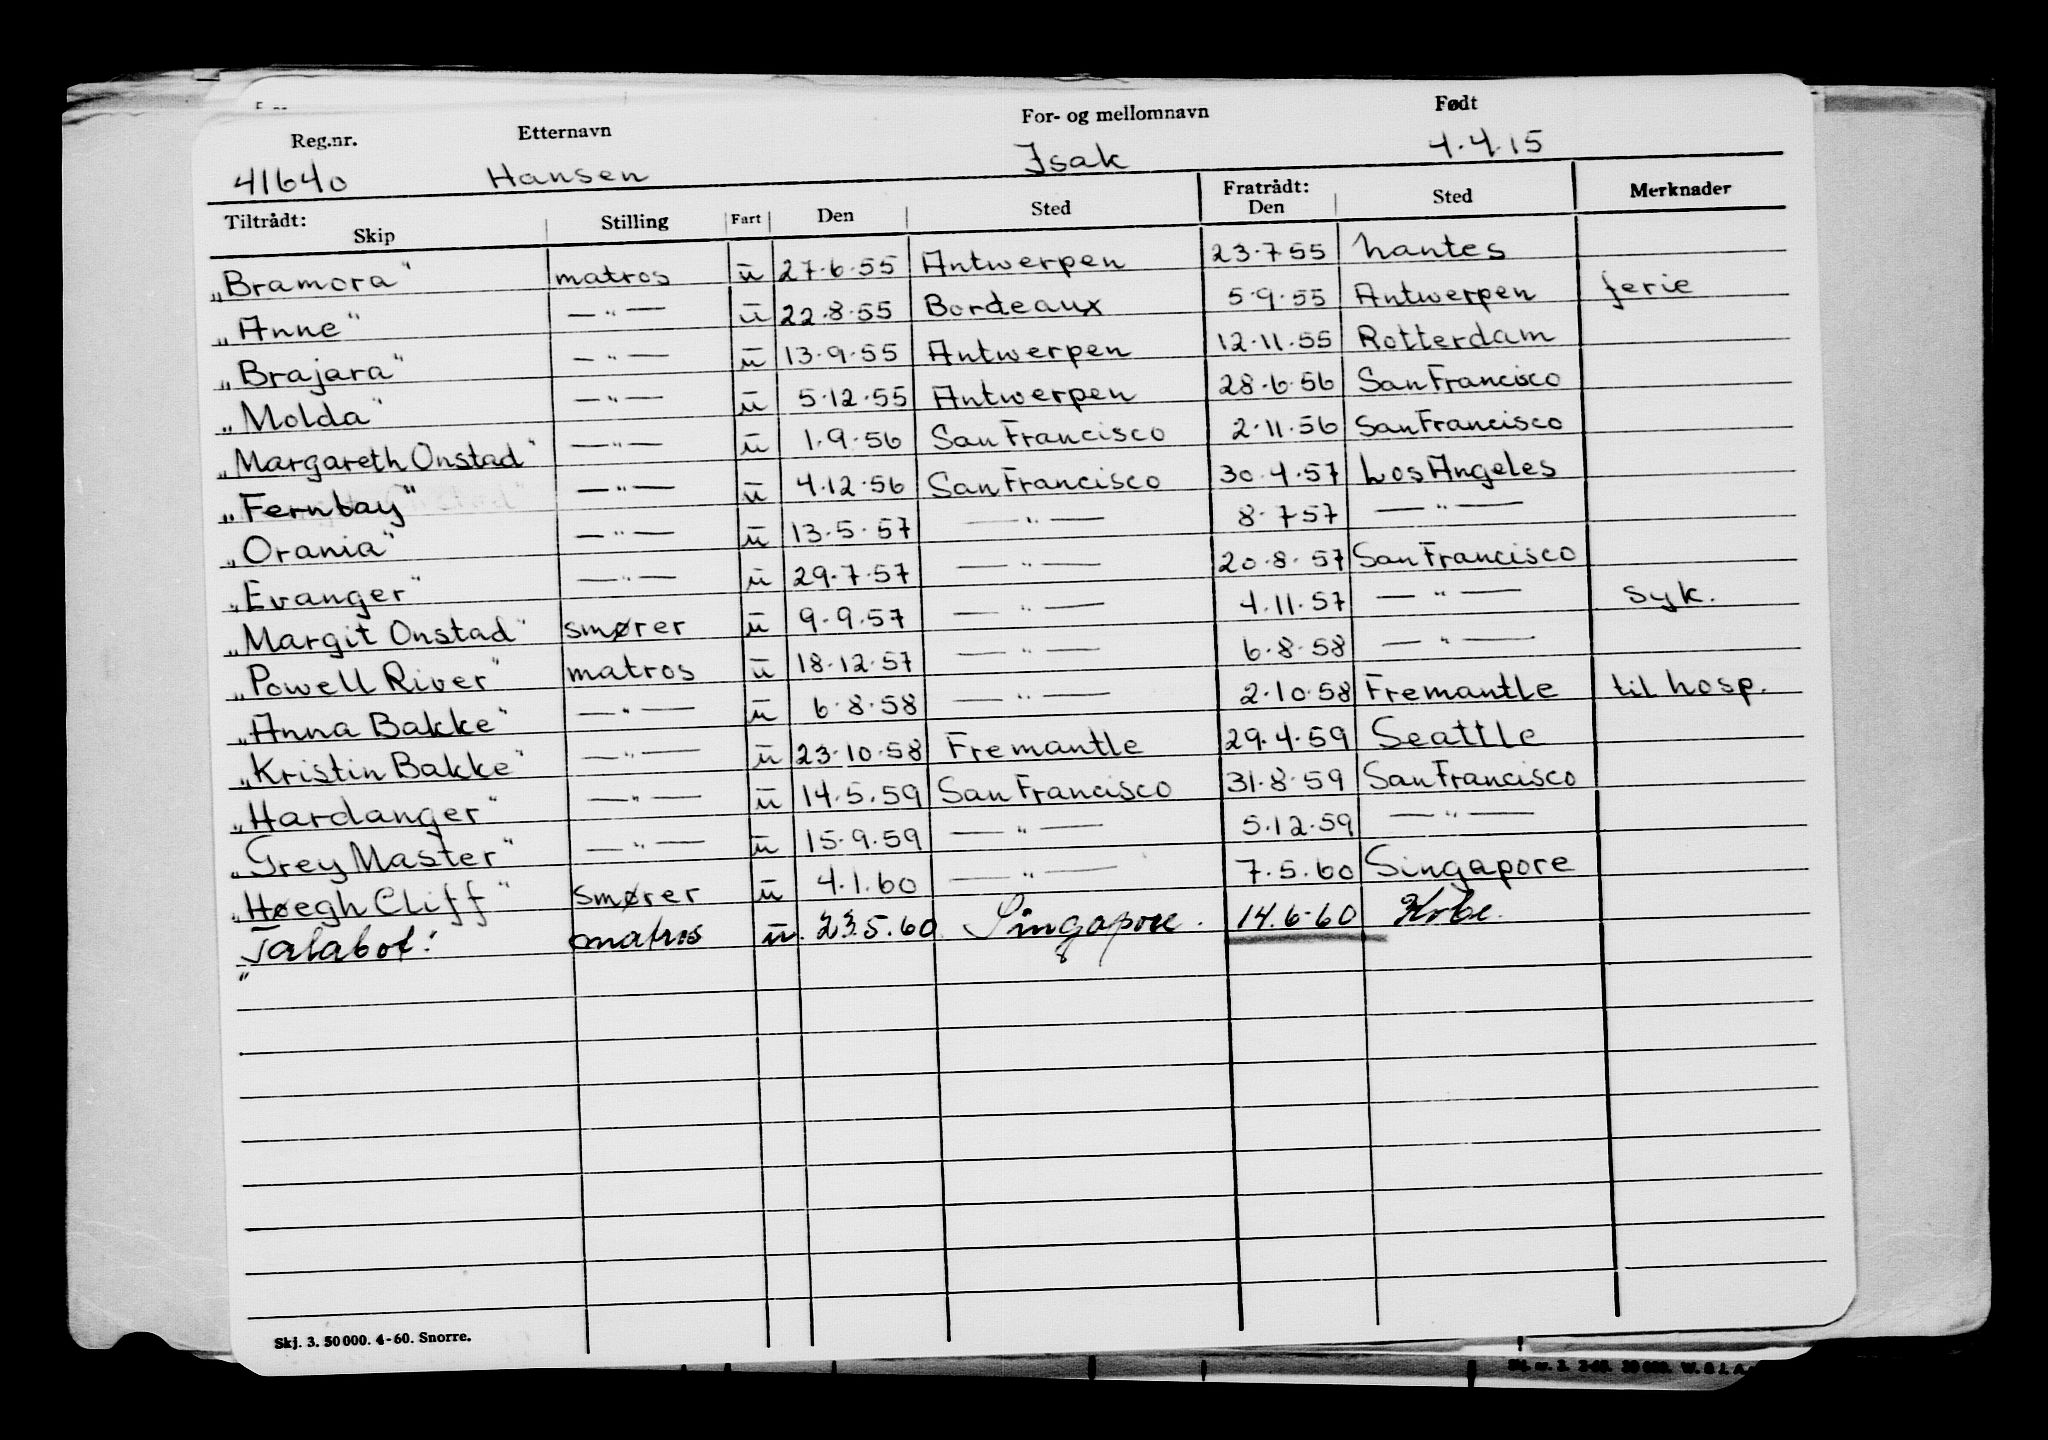 Reg.nr. Etternavn For- og mellomnavn Født
41640 Hansen Isak 4.4.15
Tiltrådt: Skip Stilling Fart Den Sted Fratrådt: Den Sted Merknader
„Bramora" matros ū 27.6.55 Antwerpen 23.7.55 Nantes
„Anne" —"— ū 22.8.55 Bordeaux 5.9.55 Antwerpen ferie
„Brajara" —"— ū 13.9.55 Antwerpen 12.11.55 Rotterdam
„Molda" —"— ū 5.12.55 Antwerpen 28.6.56 San Francisco
„Margareth Onstad" —"— ū 1.9.56 San Francisco 2.11.56 San Francisco
„Fernbay" —"— ū 4.12.56 San Francisco 30.4.57 Los Angeles
„Orania" —"— ū 13.5.57 —"— 8.7.57 —"—
„Evanger" —"— ū 29.7.57 —"— 20.8.57 San Francisco
„Margit Onstad" smører ū 9.9.57 —"— 4.11.57 —"— syk.
„Powell River" matros ū 18.12.57 —"— 6.8.58 —"—
„Anna Bakke" —"— ū 6.8.58 —"— 2.10.58 Fremantle til hosp.
„Kristin Bakke" —"— ū 23.10.58 Fremantle 29.4.59 Seattle
„Hardanger" —"— ū 14.5.59 San Francisco 31.8.59 San Francisco
„Grey Master" —"— ū 15.9.59 —"— 5.12.59 —"—
„Høegh Cliff" smører ū 4.1.60 —"— 7.5.60 Singapore
„Talabot" matros ū. 23.5.60 Singapore. 14.6.60 Kobe.
Skj. 3. 50 000. 4-60. Snorre.